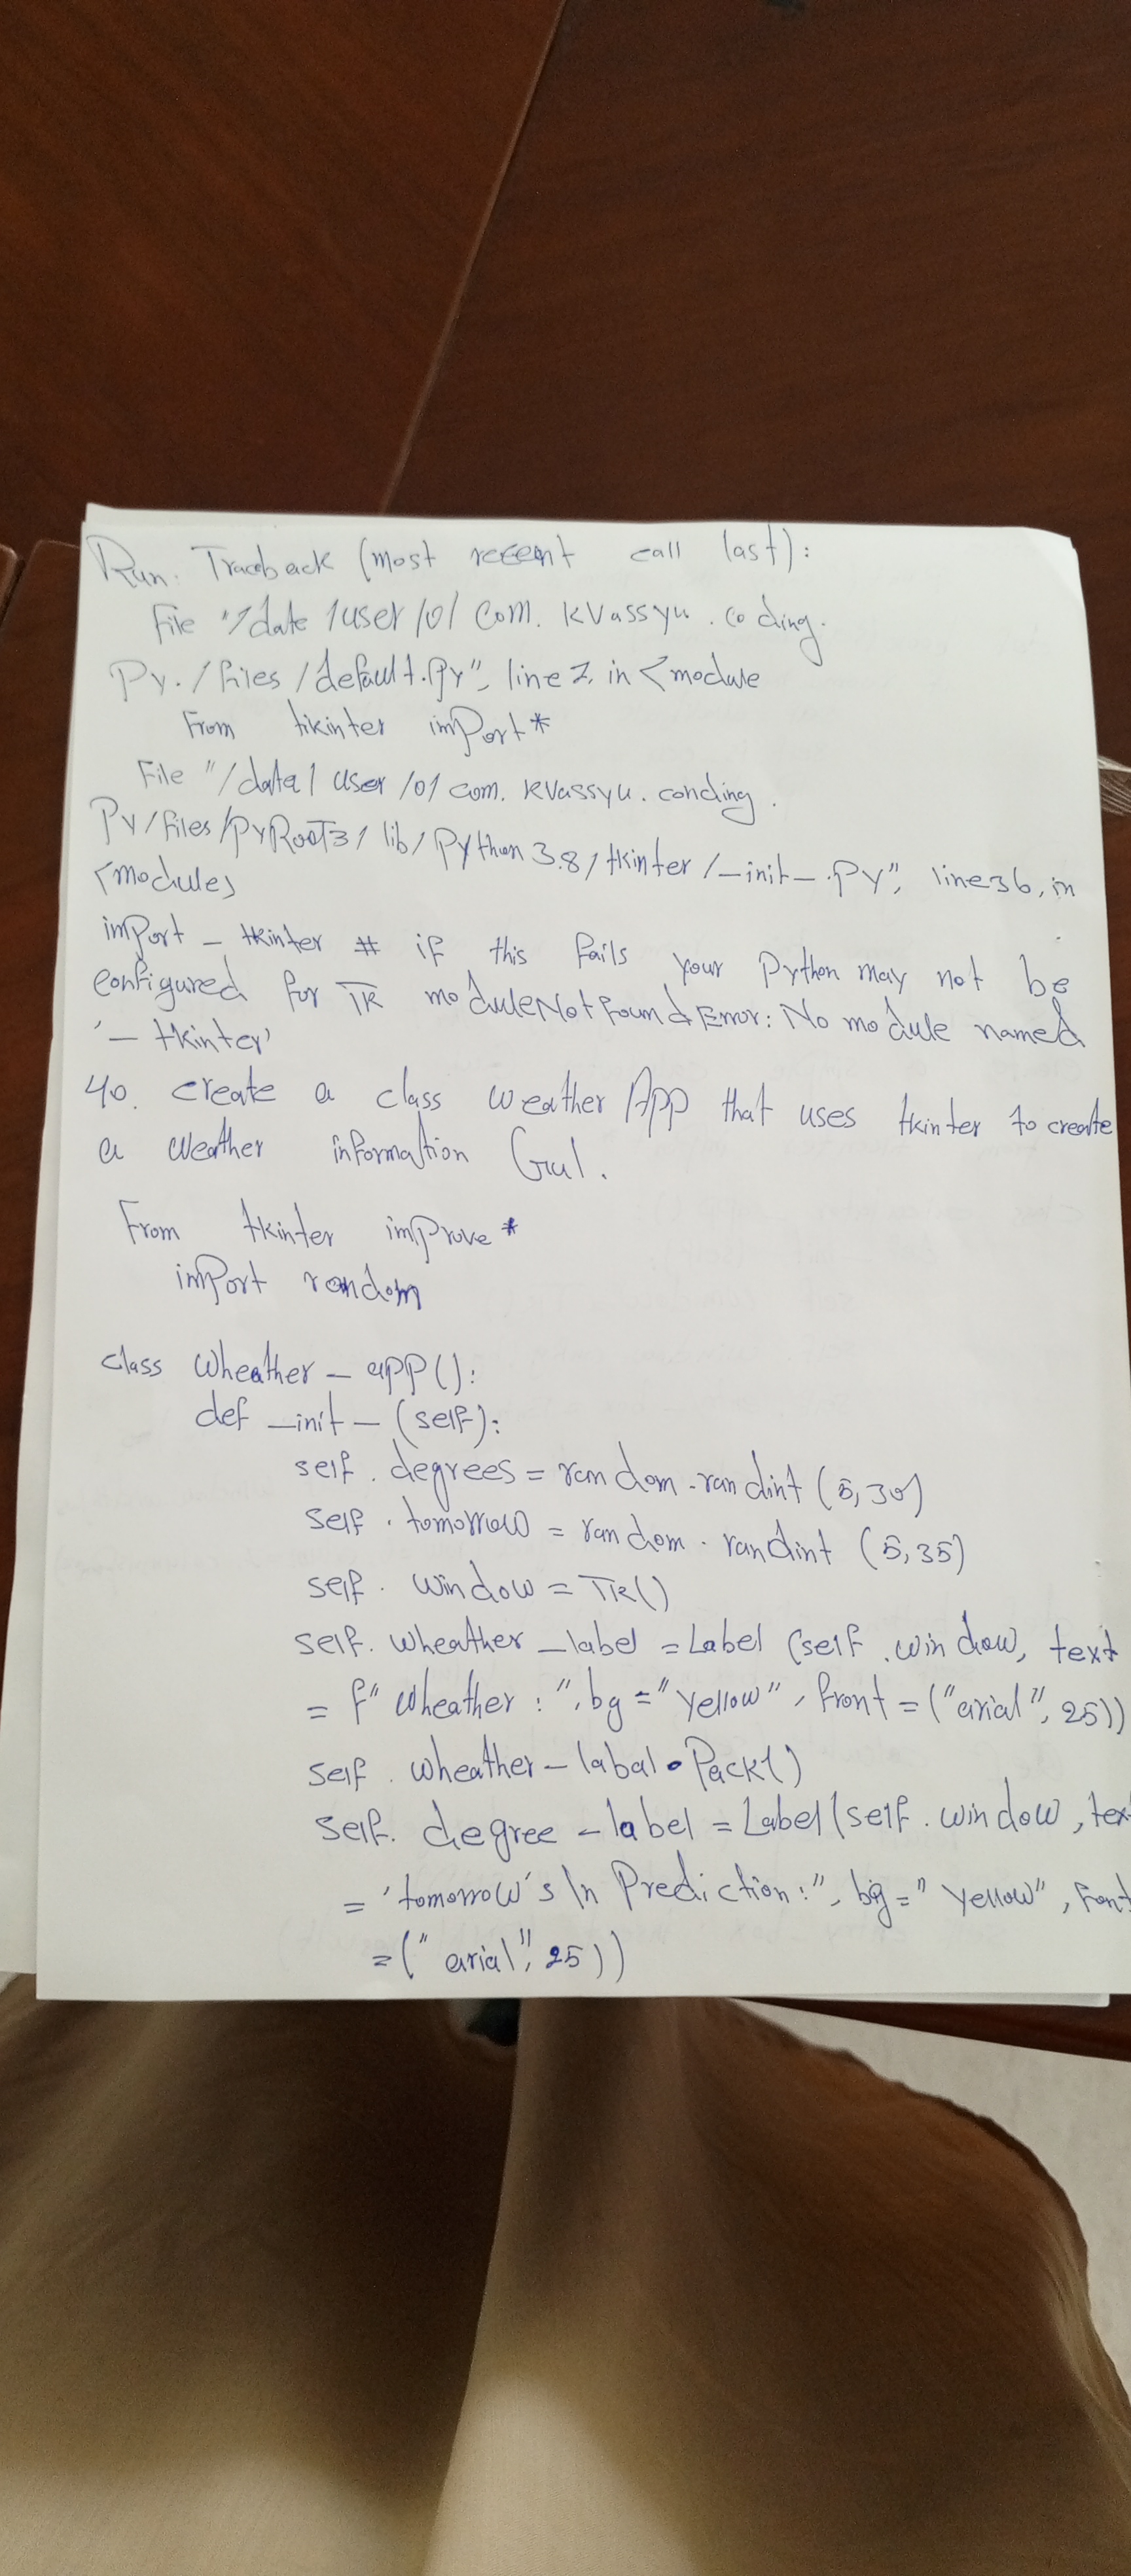 Run. Traceback (most recent call last):
File "/date /user /0/ com. kvassyu . coding.
Py. / files / default.py", line 2, in <module
From tikinter import *
File "/data / user /0/ com. kvassyu. conding.
Py/files/pyRoot3/ lib/ Python 3.8/ tkinter /_init_.py", line 36, in
<module>
import _ tkinter # if this fails your Python may not be
configured for TK moduleNotFoundError: No module named
'_ tkinter'
40. create a class weather App that uses tkinter to create
a weather information Gul.
From tkinter improve *
import random
class wheather _ app():
def _init_ (self):
self . degrees = random . randint (5,30)
self . tomorrow = random . randint (5,35)
self . window = TK()
self. wheather _label = Label (self .window, text
= f" wheather : ", bg = "yellow", front = ("arial", 25))
self . wheather _ labal . Pack()
self. degree _label = Label (self . window , tex
= 'tomorrow's \n Prediction :", bg = " yellow", Font
= (" arial", 25))